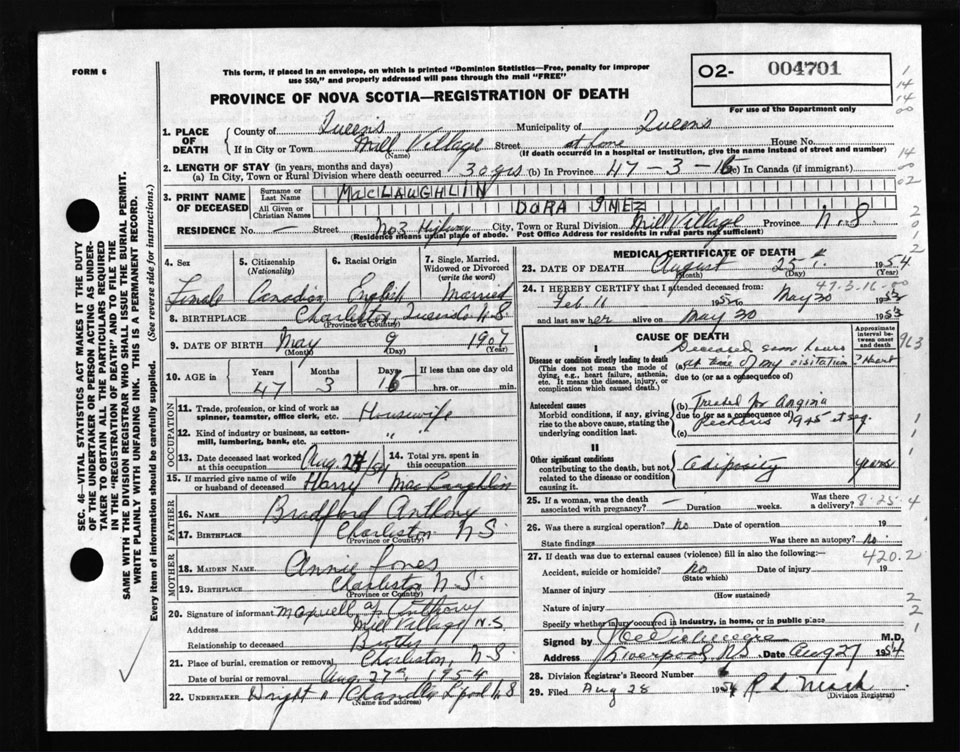 FORM 6
This form, if placed in an envelope, on which is printed "Dominion Statistics—Free, penalty for improper
use $50," and properly addressed will pass through the mail "FREE"
PROVINCE OF NOVA SCOTIA—REGISTRATION OF DEATH
02- 004701
For use of the Department only
1. PLACE OF DEATH { County of Queens Municipality of Queens
If in City or Town Mill Village Street at home House No.
(Name) (If death occurred in a hospital or institution, give the name instead of street and number)
2. LENGTH OF STAY (in years, months and days)
(a) In City, Town or Rural Division where death occurred 30 yrs (b) In Province 47-3-16 (c) In Canada (if immigrant)
3. PRINT NAME OF DECEASED { Surname or Last Name MACLAUGHLIN
All Given or Christian Names DORA INEZ
RESIDENCE No. — Street No 3 Highway City, Town or Rural Division Mill Village Province N.S
(Residence means usual place of abode. Post Office Address for residents in rural parts not sufficient)
4. Sex 5. Citizenship (Nationality) 6. Racial Origin 7. Single, Married, Widowed or Divorced (write the word)
Female Canadian English Married
8. BIRTHPLACE Charleston, Queens N.S
(Province or Country)
9. DATE OF BIRTH May 9 1907
(Month) (Day) (Year)
10. AGE in { Years 47 Months 3 Days 16 If less than one day
hrs. or min.
OCCUPATION
11. Trade, profession, or kind of work as spinner, teamster, office clerk, etc. Housewife
12. Kind of industry or business, as cotton-mill, lumbering, bank, etc. "
13. Date deceased last worked at this occupation Aug. 24/54 14. Total yrs. spent in this occupation
15. If married give name of wife or husband of deceased Harry MacLaughlin
FATHER
16. Name Bradford Anthony
17. Birthplace Charleston N.S
(Province or Country)
MOTHER
18. MAIDEN NAME Annie Jones
19. BIRTHPLACE Charleston N.S
(Province or Country)
20. Signature of informant Maxwell A. Anthony
Address Mill Village N.S.
Relationship to deceased Brother
21. Place of burial, cremation or removal Charleston, N.S
Date of burial or removal Aug. 27th, 1954
22. UNDERTAKER Chandler L'pool N.S
(Name and address)
MEDICAL CERTIFICATE OF DEATH
23. DATE OF DEATH August 25 1954
(Month) (Day) (Year)
24. I HEREBY CERTIFY that I attended deceased from:
47-3-16-00
Feb 16 1952 to May 20 1953
and last saw her alive on May 20 1953
CAUSE OF DEATH
Approximate interval between onset and death
963
I
Disease or condition directly leading to death
(This does not mean the mode of dying, e.g., heart failure, asthenia, etc. It means the disease, injury, or complication which caused death.
Deceased some hours
at time of my visitation ? Heart
due to (or as a consequence of)
Antecedent causes
Morbid conditions, if any, giving rise to the above cause, stating the underlying condition last.
(b) Treated for Angina
due to (or as a consequence of)
Pectoris 1945 et seq.
(c)
II
Other significant conditions
contributing to the death, but not related to the disease or condition causing it
Adiposity years
25. If a woman, was the death associated with pregnancy? — Duration weeks. Was there a delivery?
8-25-4
26. Was there a surgical operation? No Date of operation 19
State findings Was there an autopsy? No
27. If death was due to external causes (violence) fill in also the following:—
420.2
Accident, suicide or homicide? No Date of injury 19
(State which)
Manner of injury
(How sustained)
Nature of injury
Specify whether injury occurred in industry, in home, or in public place
Signed by M.D.
Address Liverpool, N.S Date Aug 27 1954
28. Division Registrar's Record Number
29. Filed Aug 28 1954 R L Mack
(Division Registrar)
SEC. 46—VITAL STATISTICS ACT MAKES IT THE DUTY
OF THE UNDERTAKER OR PERSON ACTING AS UNDER-
TAKER TO OBTAIN ALL THE PARTICULARS REQUIRED
IN THE "REGISTRATION OF DEATH" AND TO FILE THE
SAME WITH THE DIVISION REGISTRAR WHO SHALL ISSUE THE BURIAL PERMIT.
WRITE PLAINLY WITH UNFADING INK. THIS IS A PERMANENT RECORD.
Every item of information should be carefully supplied. (See reverse side for instructions.)